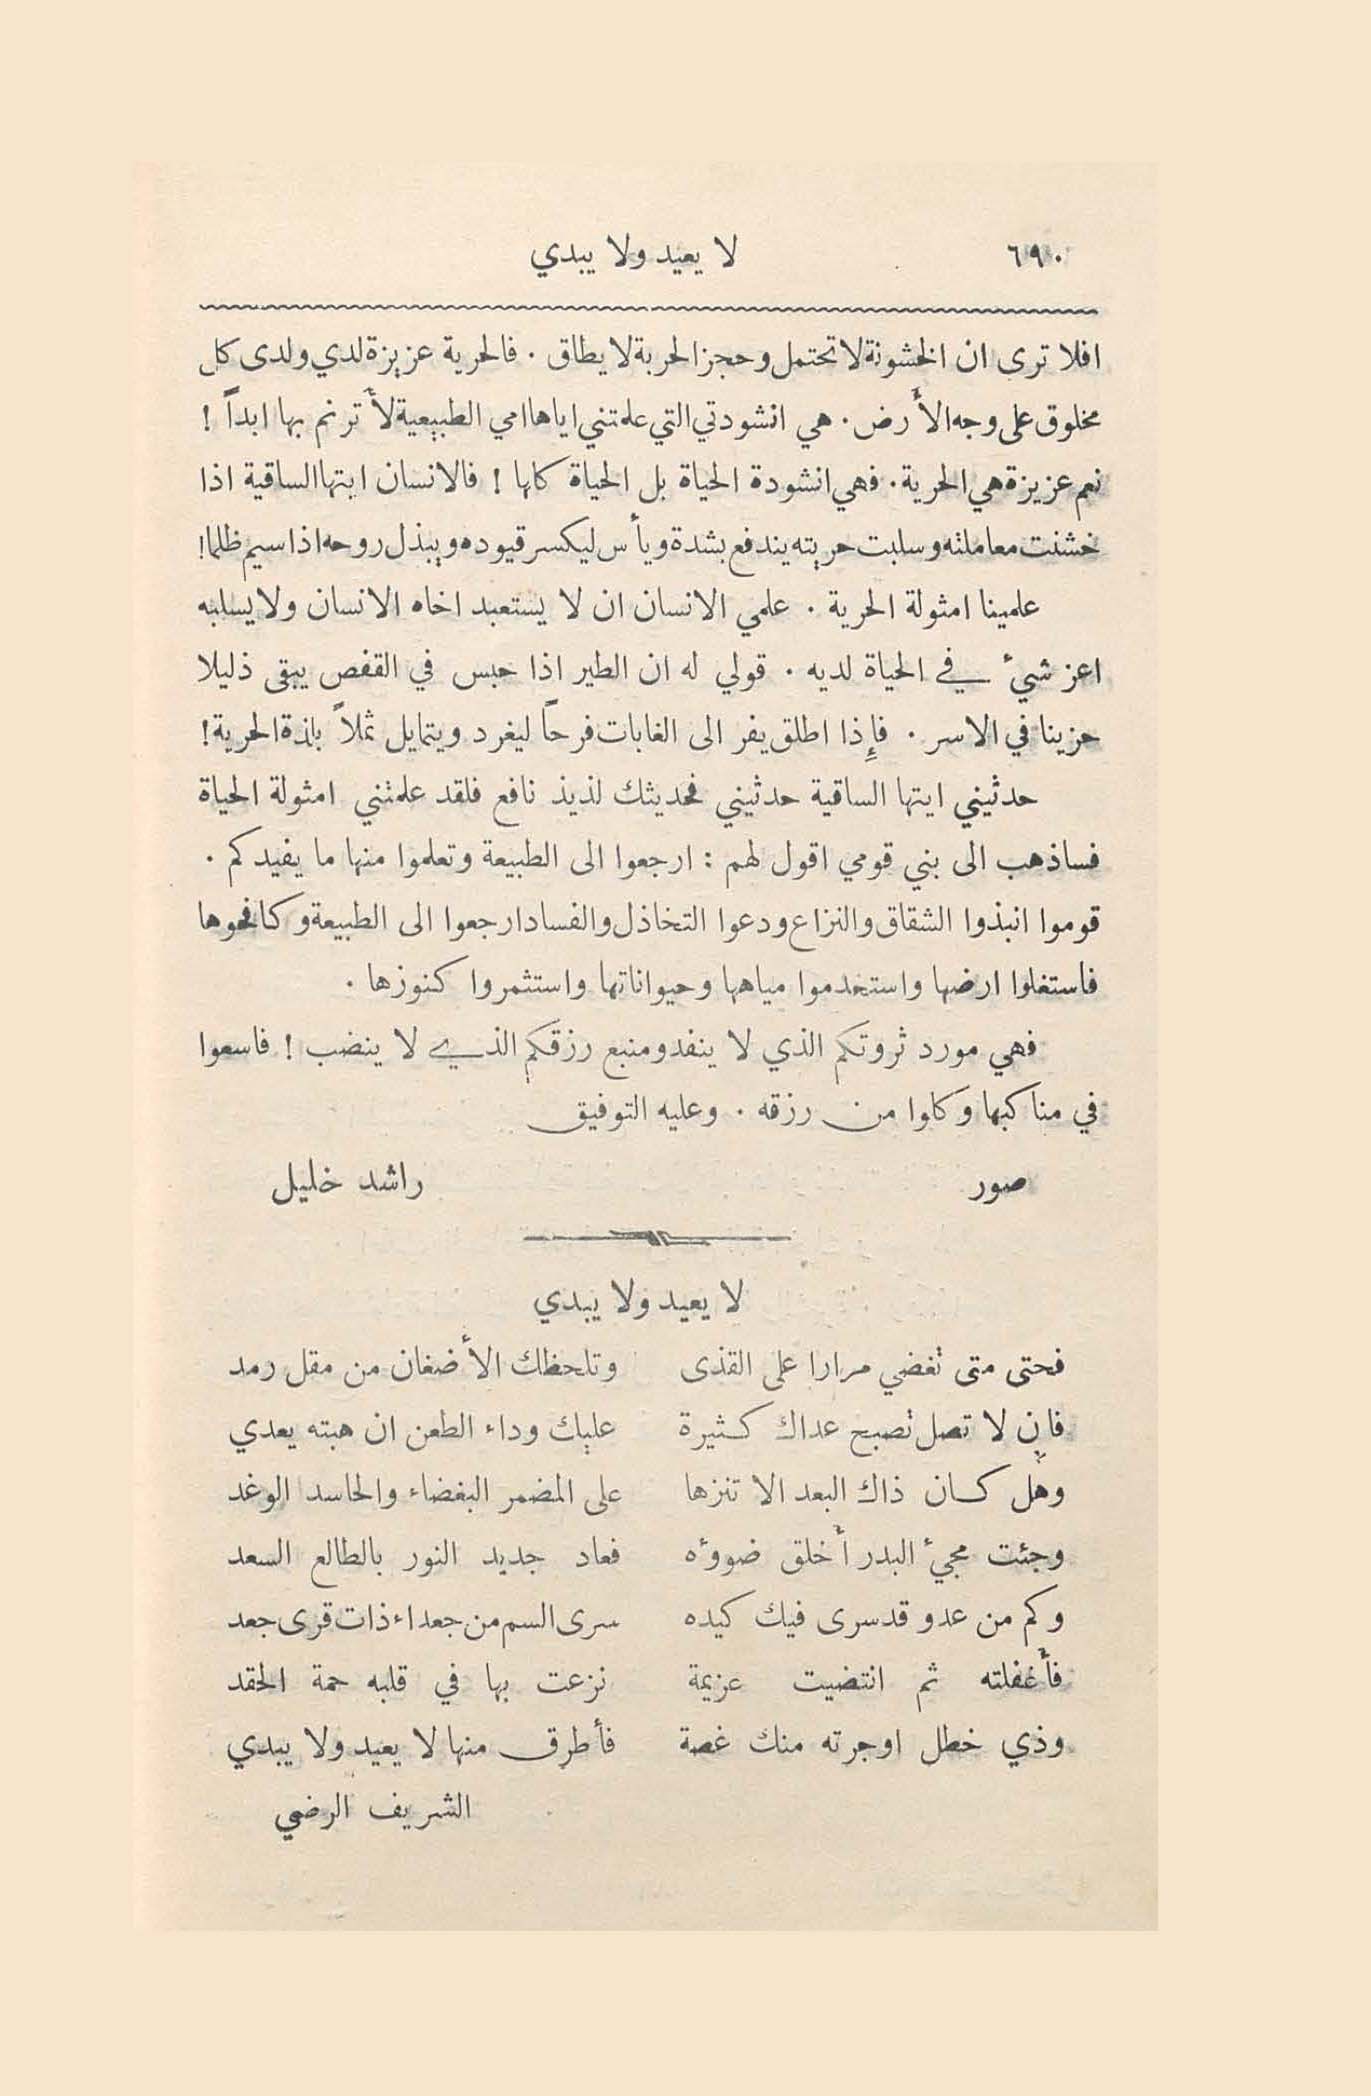 ٦٩٠ لا يعيد ولا يبدي
افلا ترى ان الخشونة لا تحتمل وحجز الحرية لا يطاق . فالحرية عزيزة لدي ولدى كل
مخلوق على وجه الأرض . هي انشودتي التي علمتني اياها امي الطبيعية لأترنم بها ابداً !
نعم عزيزة هي الحرية . فهي انشودة الحياة بل الحياة كلها ! فالانسان ايتها الساقية اذا
خشنت معاملته وسلبت حريته يندفع بشدة ويأس ليكسر قيوده ويبذل روحه اذا سيم ظلما!
علمينا امثولة الحرية . علمي الانسان ان لا يستعبد اخاه الانسان ولا يسلبه
اعز شيء في الحياة لديه . قولي له ان الطير اذا حبس في القفص يبقى ذليلا
حزينا في الاسر . فإذا اطلق يفر الى الغابات فرحاً ليغرد ويتمايل ثملاً بلذة الحرية !
حدثيني ايتها الساقية حدثيني فحديثك لذيذ نافع فلقد علمتني امثولة الحياة
فساذهب الى بني قومي اقول لهم : ارجعوا الى الطبيعة وتعلموا منها ما يفيدكم .
قوموا انبذوا الشقاق والنزاع ودعوا التخاذل والفساد ارجعوا الى الطبيعة وكافحوها
فاستغلوا ارضها واستخدموا مياهها وحيواناتها واستثمروا كنوزها .
فهي مورد ثروتكم الذي لا ينفد ومنبع رزقكم الذي لا ينضب ! فاسعوا
في مناكبها وكلوا من رزقه . وعليه التوفيق
صور راشد خليل
لا يعيد ولا يبدي
فحتى متى تغضي مرارا على القذى وتلحظك الأضغان من مقل رمد
فإن لا تصل تصبح عداك كثيرة عليك وداء الطعن ان هبته يعدي
وهل كان ذاك البعد الا تنزها على المضمر البغضاء والحاسد الوغد
وجئت مجيء البدر أخلق ضوؤه فعاد جديد النور بالطالع السعد
وكم من عدو قد سرى فيك كيده سرى السم من جعداء ذات قرى جعد
فأغفلته ثم انتضيت عزيمة نزعت بها في قلبه حمة الحقد
وذي خطل اوجرته منك غصة فأطرق منها لا يعيد ولا يبدي
الشريف الرضي